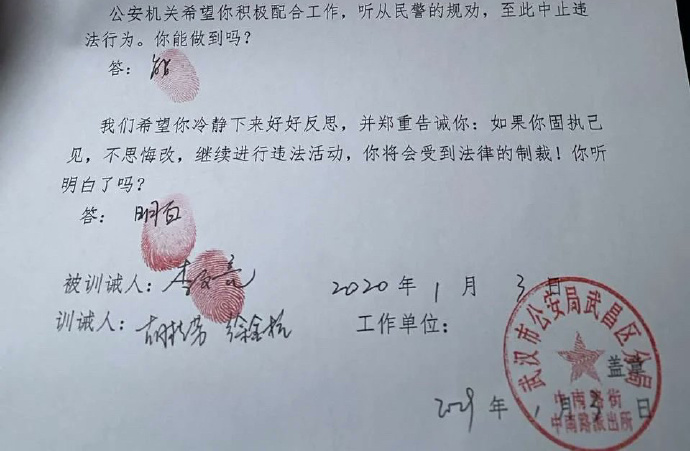 公安机关希望你积极配合工作，听从民警的规劝，至此中止违
法行为。你能做到吗？
答：能
我们希望你冷静下来好好反思，并郑重告诫你：如果你固执己
见，不思悔改，继续进行违法活动，你将会受到法律的制裁！你听
明白了吗？
答：明白
被训诫人：李文亮 2020 年 1 月 3 日
训诫人： 工作单位：
武汉市公安局武昌区分局
盖章
中南路街
中南路派出所
年 1 月 3 日